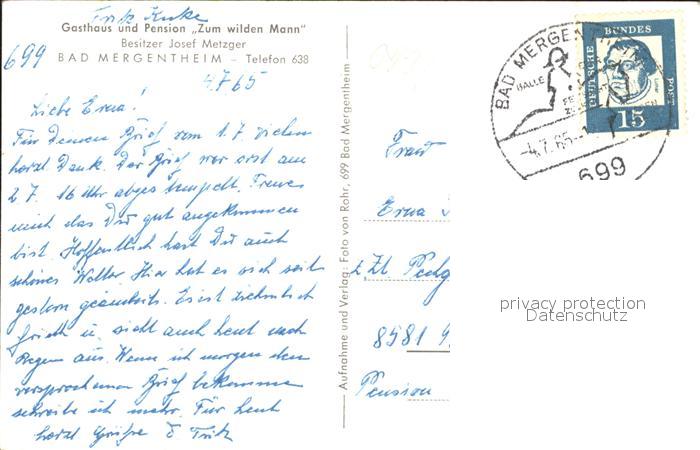 Fritz
Gasthaus und Pension „Zum wilden Mann"
Besitzer Josef Metzger
BAD MERGENTHEIM – Telefon 638
699
4.7.65
Liebe Erna!
Für Deinen Brief vom 1.7. vielen
herzl. Dank. Der Brief war erst am
2.7. 16 Uhr abgestempelt. Freue
mich das Du gut angekommen
bist. Hoffentlich hast Du auch
schönes Wetter. Hier hat es sich seit
gestern Es ist ziemlich
frisch u. sieht auch heut nach
Regen aus. Wenn ich morgen den
versprochenen Brief bekomme
schreibe ich mehr. Für heut
herzl Grüße D Fritz
Aufnahme und Verlag: Foto von Rohr, 699 Bad Mergentheim
BAD MERGENTHEIM
HALLE
-4.7.65-1
699
DEUTSCHE BUNDESPOST
15
Frau
Erna
z. Zt.
8581
Pension
privacy protection
Datenschutz